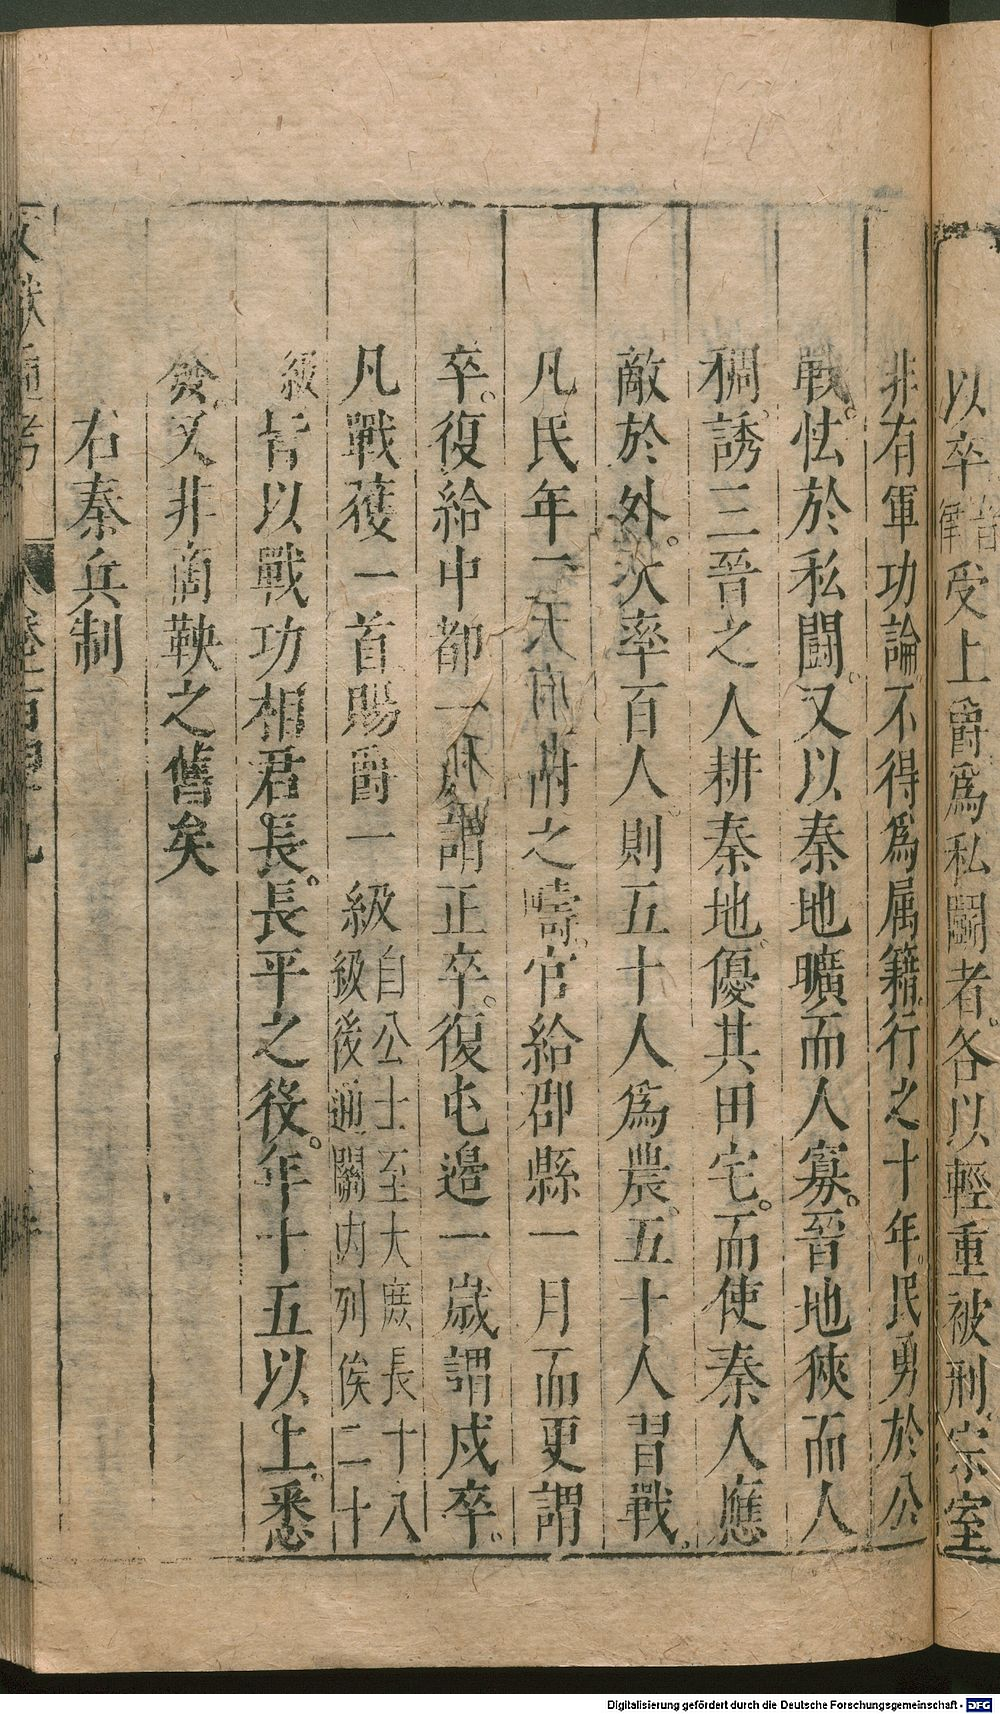 以卒音率受上爵爲私鬭者各以輕重被刑宗室
非有軍功論不得爲属籍行之十年民勇於公
戰怯於私鬭又以秦地曠而人寡晉地狹而人
稠誘三晉之人耕秦地優其田宅而使秦人應
敵於外大率百人則五十人爲農五十人習戰
凡民年二之疇官給郡縣一月而更謂
卒復給中都一謂正卒復屯邊一歲謂戍卒
凡戰獲一首賜爵一級自公士至大庶長十八
級後通關内列侯二十
級皆以戰功相君長長平之役年十五以上悉
發又非商鞅之舊矣
右秦兵制
文獻通考
Digitalisierung gefördert durch die Deutsche Forschungsgemeinschaft - DFG